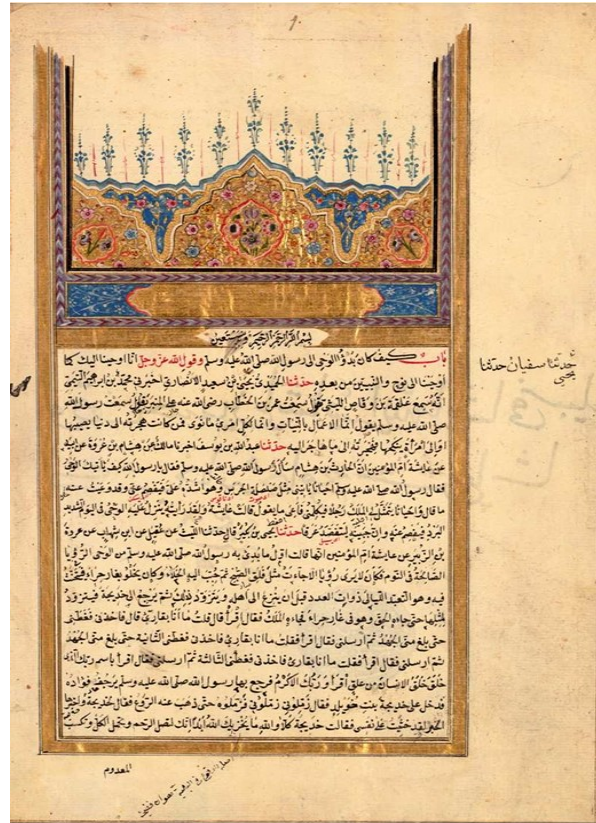 1
بسم الله الرحمن الرحيم وبه نستعين
باب كيف كان بدؤ الوحي الى رسول الله صلى الله عليه وسلم وقول الله عز وجل انا اوحينا اليك كما
اوحينا الى نوح والنبيين من بعده حدثنا الحميدي يحيى بن سعيد الانصاري اخبرني محمد بن ابراهيم التيمي
انه سمع علقمة بن وقاص الليثي يقول سمعت عمر بن الخطاب رضي الله عنه على المنبر يقول سمعت رسول الله
صلى الله عليه وسلم يقول انما الاعمال بالنيات وانما لكل امرئ ما نوى فمن كانت هجرته الى دنيا يصيبها
او الى امرأة ينكحها فهجرته الى ما هاجر اليه حدثنا عبد الله بن يوسف اخبرنا مالك عن هشام بن عروة عن ابيه
عن عايشة ام المؤمنين ان الحارث بن هشام سأل رسول الله صلى الله عليه وسلم فقال يا رسول الله كيف يأتيك الوحي
فقال رسول الله صلى الله عليه وسلم احيانا يأتيني مثل صلصلة الجرس وهو اشده علي فيفصم عني وقد وعيت عنه
ما قال واحيانا يتمثل لي الملك رجلا فيكلمني فأعي ما يقول قالت عايشة ولقد رأيته ينزل عليه الوحي في اليوم الشديد
البرد فيفصم عنه وان جبينه ليتفصد عرقا حدثنا يحيى بن بكير قال حدثنا الليث عن عقيل عن ابن شهاب عن عروة
بن الزبير عن عايشة ام المؤمنين انها قالت اول ما بدئ به رسول الله صلى الله عليه وسلم من الوحي الرؤيا
الصالحة في النوم فكان لا يرى رؤيا الا جاءت مثل فلق الصبح ثم حبب اليه الخلاء وكان يخلو بغار حراء فيتحنث
فيه وهو التعبد الليالي ذوات العدد قبل ان ينزع الى اهله ويتزود لذلك ثم يرجع الى خديجة فيتزود
لمثلها حتى جاءه الحق وهو في غار حراء فجاءه الملك فقال اقرأ قال قلت ما انا بقارئ قال فاخذني فغطني
حتى بلغ مني الجهد ثم ارسلني فقال اقرأ فقلت ما انا بقارئ فاخذني فغطني الثانية حتى بلغ مني الجهد
ثم ارسلني فقال اقرأ فقلت ما انا بقارئ فاخذني فغطني الثالثة ثم ارسلني فقال اقرأ باسم ربك الذي
خلق خلق الانسان من علق اقرأ وربك الاكرم فرجع بها رسول الله صلى الله عليه وسلم يرجف فؤاده
فدخل على خديجة بنت خويلد فقال زملوني زملوني فزملوه حتى ذهب عنه الروع فقال لخديجة واخبرها
الخبر لقد خشيت على نفسي فقالت خديجة كلا والله ما يخزيك الله ابدا انك لتصل الرحم وتحمل الكل وتكسب
المعدوم
حدثنا سفيان حدثنا
يحيى